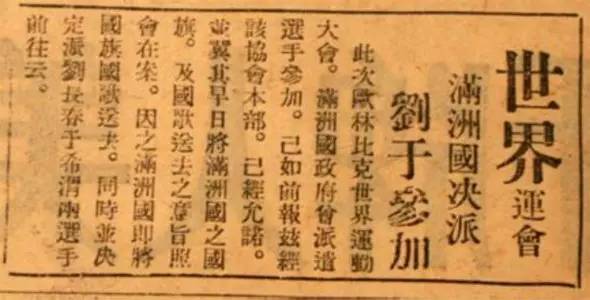 世界運會
滿洲國決派
劉于參加
此次歐林比克世界運動
大會。滿洲國政府會派遣
選手參加。己如前報茲經
該協會本部。己經允諾。
並冀其早日將滿洲國之國
旗。及國歌送去之意旨照
會在案。因之滿洲國即將
國旗國歌送去。同時並決
定派劉長春于希渭兩選手
前往云。